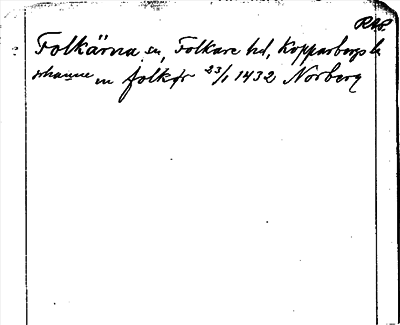 RAP.
Folkärna sn, Folkare hd, Kopparbergs l.
Johanne in folkør 23/1 1432 Norberg